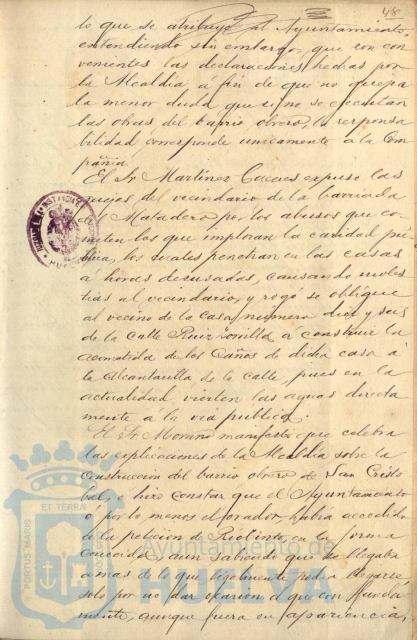 48
lo que se atribuye al Ayuntamiento,
entendiendo sin embargo, que son con
venientes las declaraciones hechas por
la Alcaldía a fin de que no quepa
la menor duda que si no se ejecutan
las obras del barrio obrero, la responsa
bilidad corresponde unicamente á la Com
pañia.
El Sr Martinez expuso las
quejas del vecindario de la barriada
del Matadero por los abusos que co-
meten los que imploran la caridad pú
blica, los cuales penetran en las casas
á horas desusadas, causando moles
tias al vecindario, y rogó se oblique
al vecino de la casa número diez y seis
de la calle Ruiz Zorrilla á construir la
acometida de los caños de dicha casa á
la alcantarilla de la calle, pues en la
actualidad vierten las aguas directa
mente á la via pública.
El Sr Moreno manifestó que celebra
las explicaciones de la Alcaldía sobre la
construcción del barrio obrero de San Cristo
bal, e hizo constar que el Ayuntamiento
o por lo menos el orador, había accedido
á la petición de Riotinto, en la forma
conocida, aun sabiendo que se llegaba
a mas de lo que legalmente podia llegarse
solo por no dar ocasion á que con funda
mento, aunque fuera en apariencia,
PORTUS MARIS
ET TERRAE
Ayuntamiento de
HUELVA